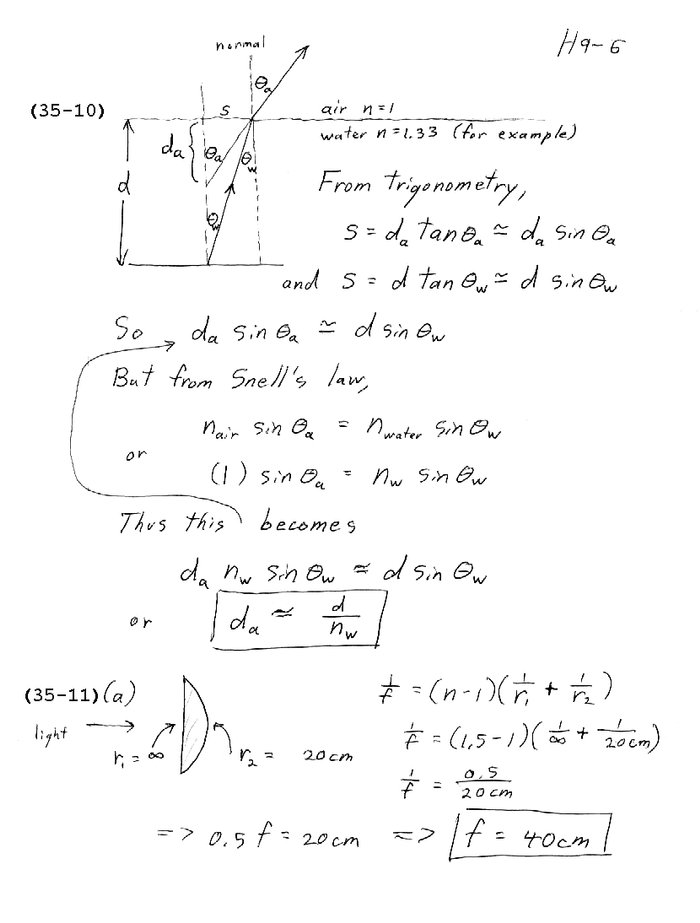 H9-6
normal
θₐ
(35-10)
s
air n=1
water n=1.33 (for example)
dₐ
θₐ
θ_w
d
θ_w
From trigonometry,
s = dₐ tan θₐ ≃ dₐ sin θₐ
and s = d tan θ_w ≃ d sin θ_w
So dₐ sin θₐ ≃ d sin θ_w
But from Snell's law,
n_air sin θₐ = n_water sin θ_w
or
(1) sin θₐ = n_w sin θ_w
Thus this becomes
dₐ n_w sin θ_w ≃ d sin θ_w
or dₐ ≃ d/n_w
(35-11) (a)
1/f = (n-1)(1/r₁ + 1/r₂)
light
1/f = (1.5-1)(1/∞ + 1/20cm)
r₁ = ∞
r₂ = 20cm
1/f = 0.5/20cm
=> 0.5 f = 20cm => f = 40cm